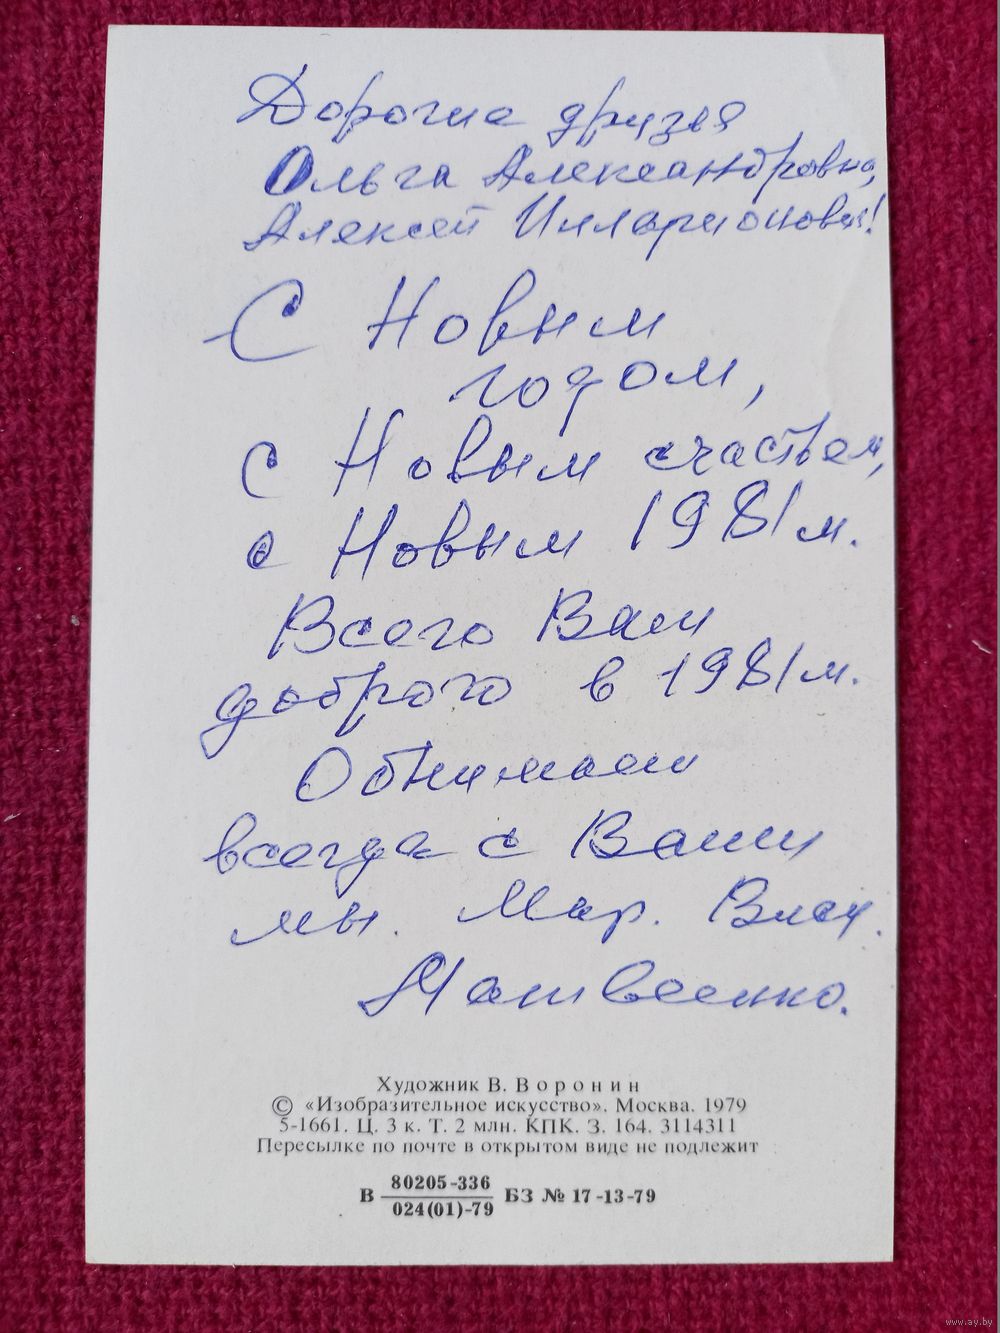 Дорогие друзья
Ольга Александровна,
Алексей Илларионович!
С Новым
годом,
с Новым счастьем,
с Новым 1981 м.
Всего Вам
доброго в 1981 м.
Обнимаем
всегда с Вами
мы. Мар. Влад.
Матвеенко.
Художник В. Воронин
© «Изобразительное искусство». Москва. 1979
5-1661. Ц. 3 к. Т. 2 млн. КПК. З. 164. 3114311
Пересылке по почте в открытом виде не подлежит
В 80205-336 БЗ № 17-13-79
024(01)-79
www.ay.by